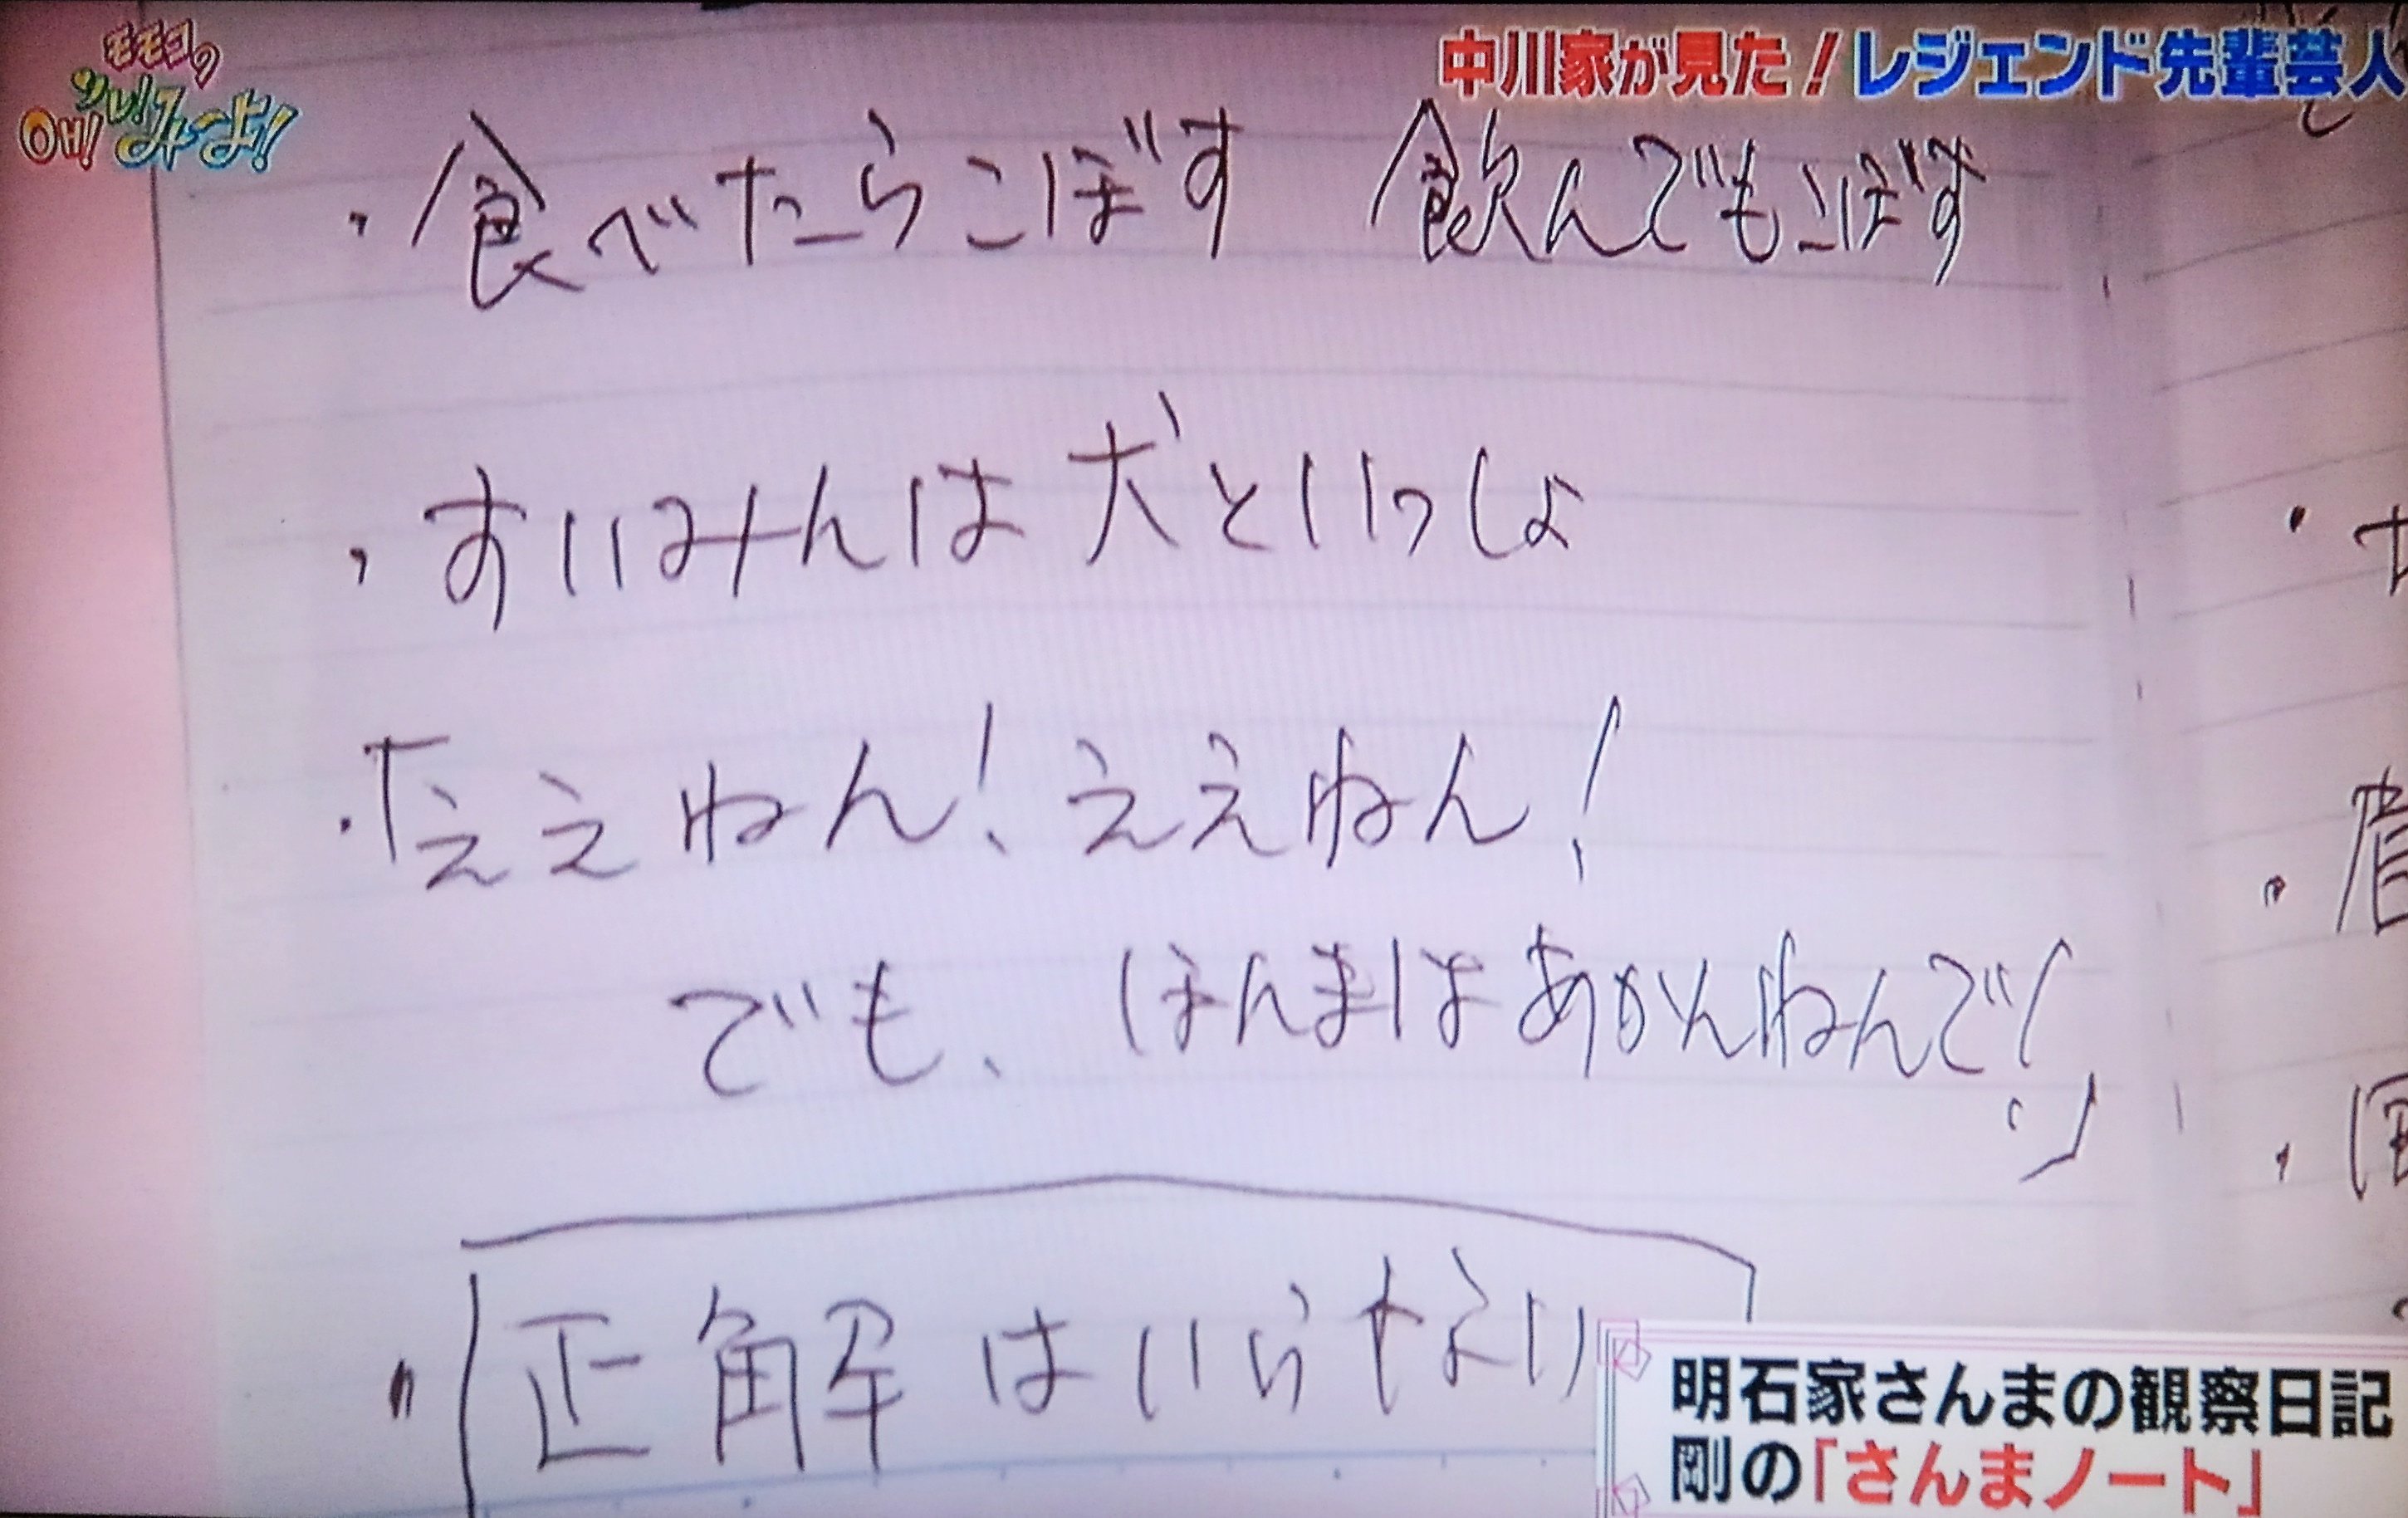 モモコの
OH!ソレ!み~よ!
中川家が見た!レジェンド先輩芸人
・食べたらこぼす 飲んでもこぼす
・すいみんは犬といっしょ
・「ええねん!ええねん!
でも、ほんまはあかんねんで!」
・正解はいらない
明石家さんまの観察日記
剛の「さんまノート」